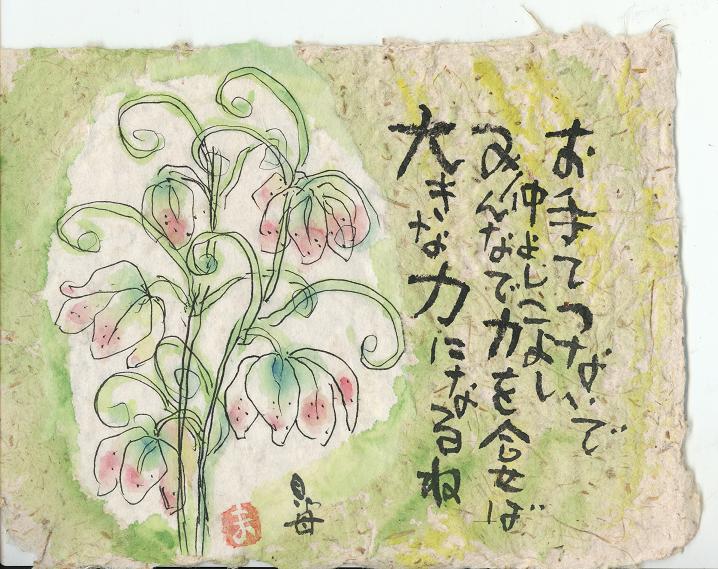 お手てつないで
仲よしこよし
みんなで力を合せば
大きな力になるね
貝母
ま